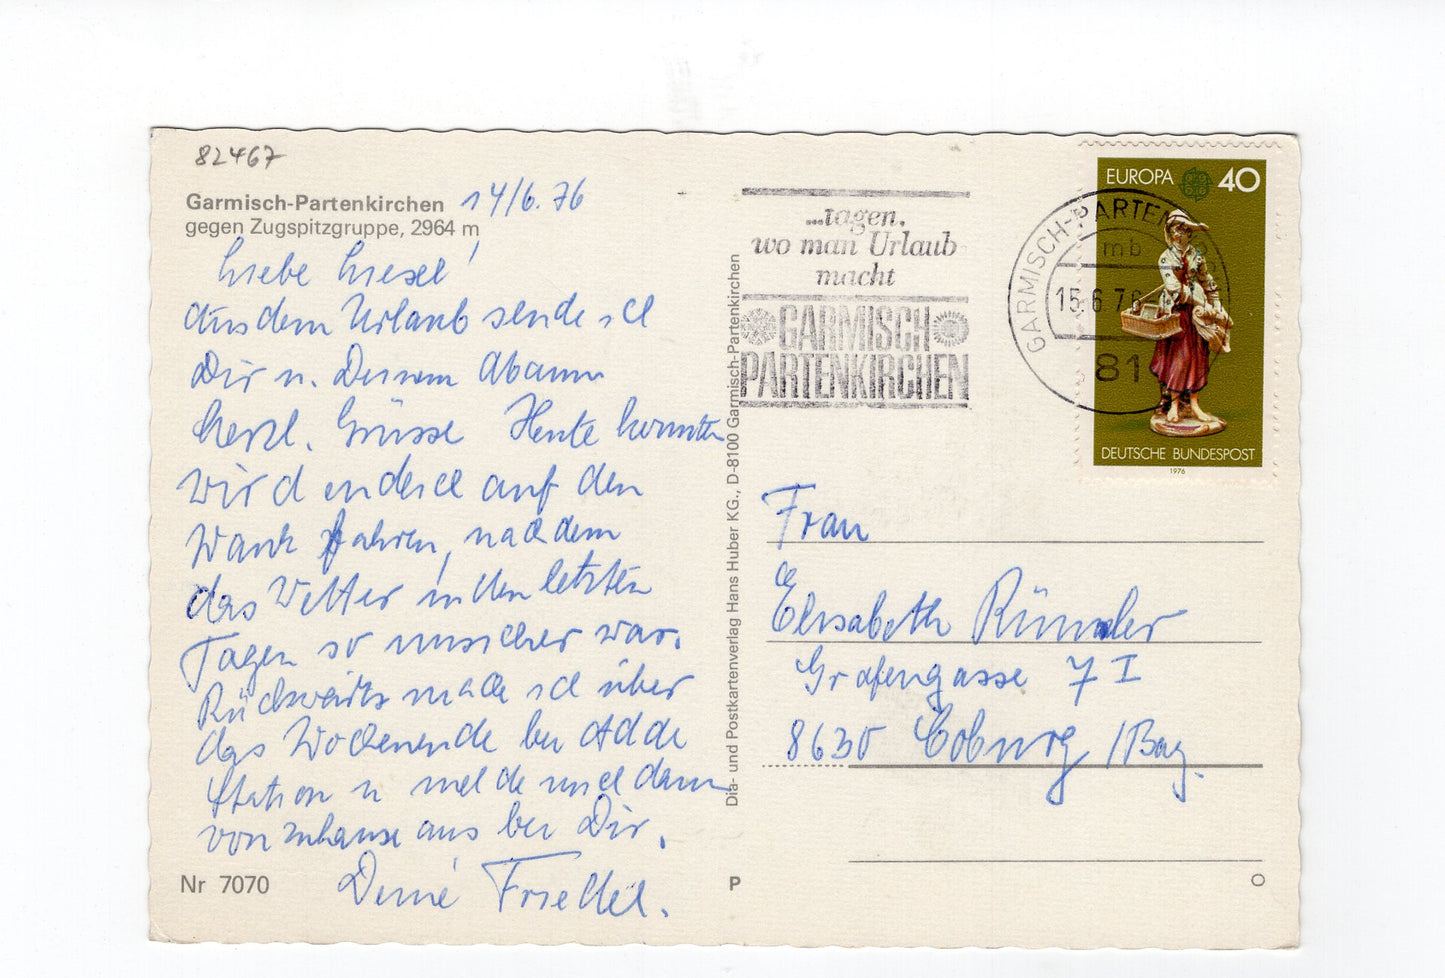 82467
Garmisch-Partenkirchen 14/6. 76
gegen Zugspitzgruppe, 2964 m
Liebe Liesel!
Aus dem Urlaub sende ich
Dir u. Deinem
herzl. Grüsse Heute konnten
wir endlich auf den
Wank fahren, nachdem
das Wetter in den letzten
Tagen so unsicher war.
Rückwärts mache ich über
das Wochenende bei
Station u melde mich dann
von zuhause aus bei Dir.
Deine Friedel.
Nr 7070
Dia- und Postkartenverlag Hans Huber KG., D-8100 Garmisch-Partenkirchen
P
...tagen,
wo man Urlaub
macht
GARMISCH
PARTENKIRCHEN
GARMISCH-PARTEN
mb
15.6.76
81
EUROPA 40
DEUTSCHE BUNDESPOST
1976
Frau
Elisabeth
Grafengasse 7 I
8630 Coburg /Bay.